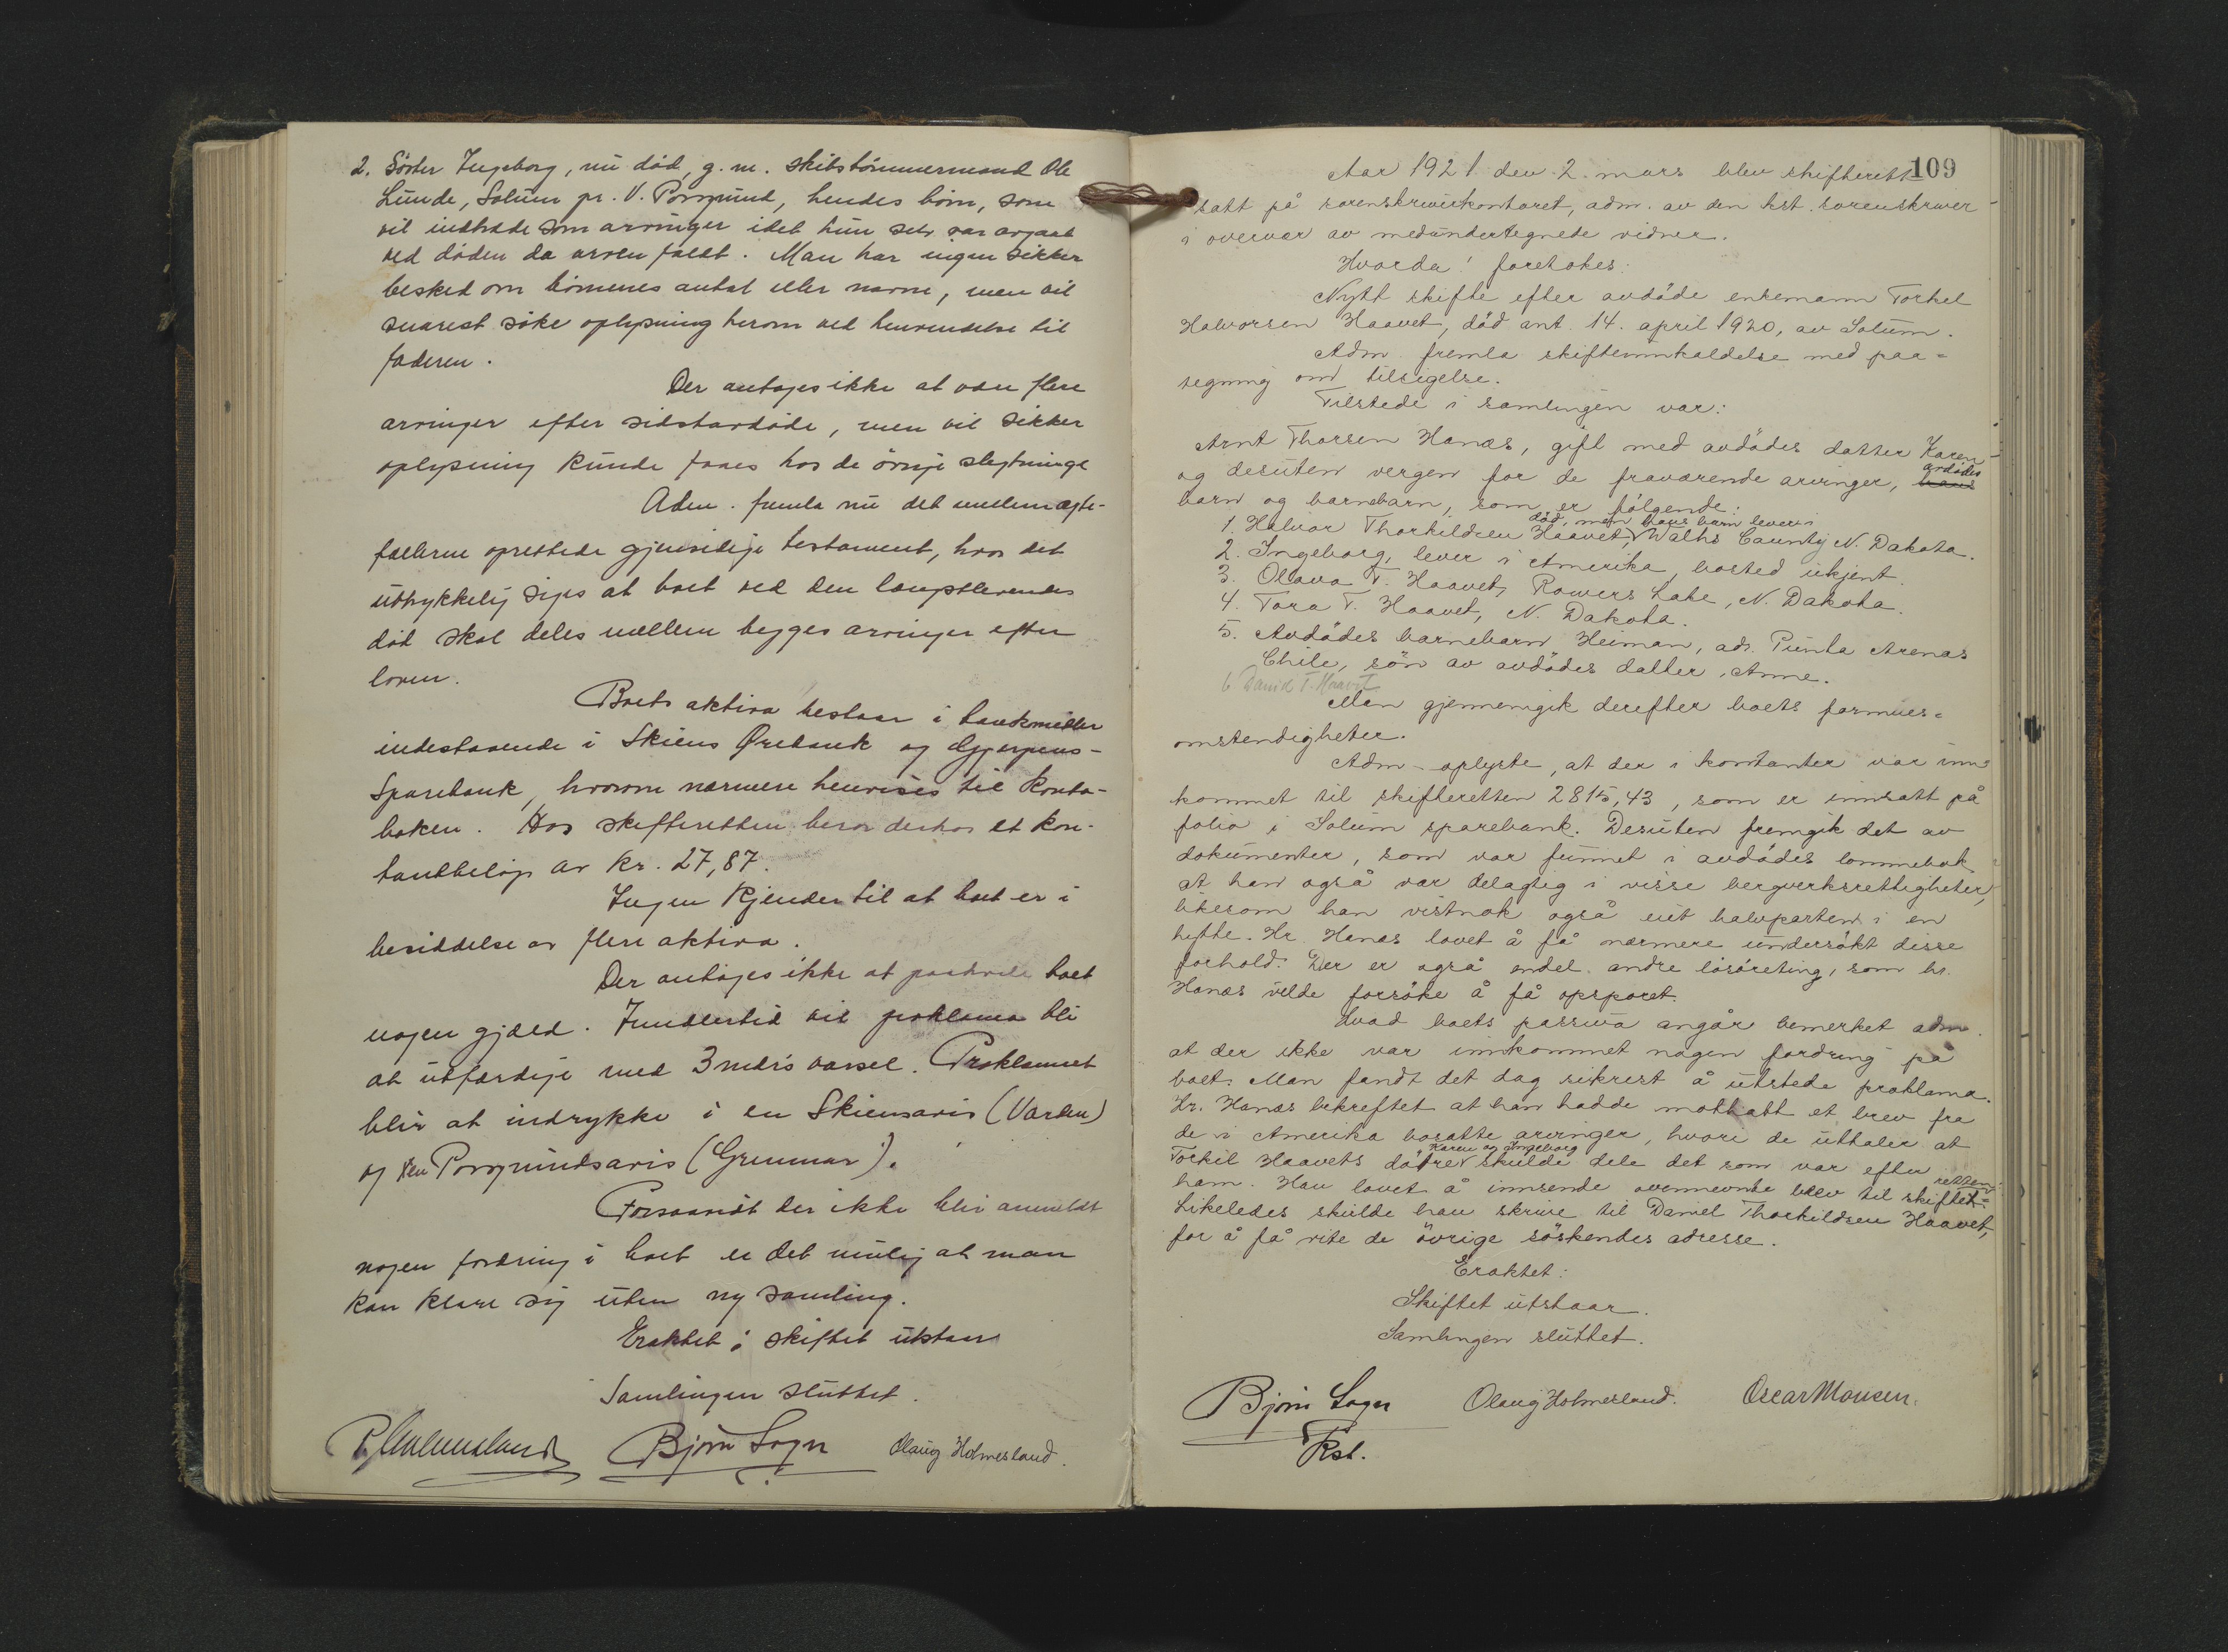 2. Søster Ingeborg, nu død, g. m. skibstømmermand Ole
Lunde, Solum pr. V. Porsgrund, hendes børn, som
vil indtræde som arvinger idet hun selv var avgaat
ved døden da arven faldt. Man har ingen sikker
besked om børnenes antal eller navne, men vil
snarest søke oplysning herom ved henvendelse til
faderen.
Der antages ikke at være flere
arvinger efter sidstavdøde, men vil sikker
oplysning kunde faaes hos de øvrige slegtninge
Adm. fremla nu det mellem egte-
fællerne oprettede gjensidige testament, hvor det
uttrykkelig siges at boet ved den længstlevendes
død skal deles mellem begges arvinger efter
loven.
Boets aktiva bestaar i bankmidler
indestaaende i Skiens Ørebank og Gjerpens-
Sparebank, hvorom nærmere henvises til konto-
boken. Hos skifteretten beror derhos et kon-
tantbeløp av kr. 27,87.
Ingen kjender til at boet er i
besiddelse av flere aktiva.
Der antages ikke at paahvile boet
nogen gjæld. Imidlertid vil proklama bli
at utfærdige med 3 mdrs varsel. Proklamaet
blir at indrykke i en Skiensavis (Varden)
og en Porsgrundsavis (Grenmar).
Forsaavidt der ikke blir anmeldt
nogen fordring i boet er det mulig at man
kan klare sig uten ny samling.
Eraktet: skiftet utstaar
Samlingen sluttet.
Bjørn Sogn Olaug Holmesland.
109
Aar 1921 den 2. mars blev skifterett
satt på sorenskriverkontoret, adm. av den kst. sorenskriver
i overvær av medundertegnede vidner.
Hvorda! foretokes:
Nytt skifte efter avdøde enkemann Torkel
Halvorsen Haavet, død ant. 14. april 1920, av Solum.
Adm. fremla skifteinnkaldelse med paa=
tegning om tilsigelse.
Tilstede i samlingen var:
Arnt Thorsen Hanæs, gift med avdødes datter Karen
og desuten vergen for de fraværende arvinger, hans avdødes
barn og barnebarn, som er følgende:
død, men hans barn lever i
1. Halvor Thorkildsen Haavet, Walhs County N. Dakota.
2. Ingeborg, lever i Amerika, bosted ukjent.
3. Olava T. Haavet, Rowers Lake, N. Dakota.
4. Tora T. Haavet, N. Dakota.
5. Avdødes barnebarn Heiman, adr. Punta Arenas
Chile, søn av avdødes datter, Anne.
6 Daniel T. Haavet
Man gjennemgik derefter boets formues=
omstendigheter.
Adm. oplyste, at der i kontanter var inn=
kommet til skifteretten 2815,43, som er innsatt på
folio i Solum sparebank. Desuten fremgik det av
dokumenter, som var funnet i avdødes lommebok
at han også var delagtig i visse bergverksrettigheter,
likesom han vistnok også eiet halvparten i en
hytte. Hr. Hanæs lovet å få nærmere undersøkt disse
forhold. Der er også endel andre løsøreting, som hr.
Hanæs vilde forsøke å få opsporet.
Hvad boets passiva angår bemerket adm.
at der ikke var innkommet nogen fordring på
boet. Man fandt det dog sikrest å utstede proklama.
Hr. Hanæs bekreftet at han hadde mottatt et brev fra
de i Amerika bosatte arvinger, hvori de uttaler at
Karen og Ingeborg
Torkil Haavets døtre skulde dele det som var efter
ham. Han lovet å innsende ovennevnte brev til skifteretten.
Likeledes skulde han skrive til Daniel Thorkildsen Haavet,
for å få vite de øvrige søskendes adresse.
Eraktet:
Skiftet utstaar.
Samlingen sluttet.
Bjørn Sogn Olaug Holmesland. Oscar Monsen.
Kst.